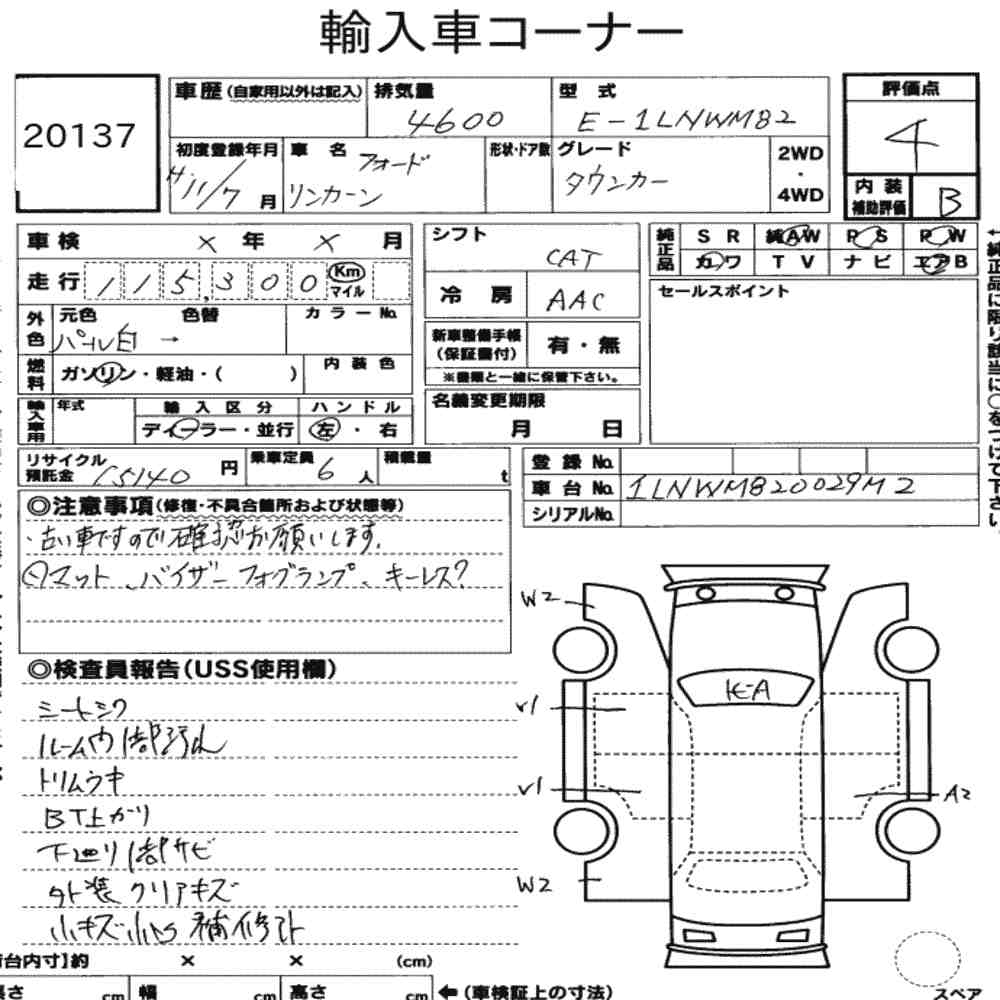 輸入車コーナー
20137
車歴(自家用以外は記入)
排気量
4600
型 式
E-1LNWM82
評価点
4
初度登録年月
H.11/7月
車 名
フォード
リンカーン
形状・ドア数
グレード
タウンカー
2WD
・
4WD
内 装
補助評価
B
車 検 × 年 × 月
シフト
CAT
純正品
SR 純AW PS PW
カワ TV ナビ エアB
走 行 115,300 Km
マイル
冷 房 AAC
セールスポイント
外色
元色 色替 カラーNo.
パール白 →
新車整備手帳
(保証書付)
有・無
※書類と一緒に保管下さい。
燃料
ガソリン・軽油・( )
内 装 色
輸入車用
年式
輸 入 区 分
ハ ン ド ル
ディーラー・並行
左・右
名義変更期限
月 日
←純正品に限り該当に○をつけて下さい。
リサイクル
預託金
15140円
乗車定員
6人
積載量
t
登 録 No.
車 台 No. 1LNWM820029M2
シリアルNo.
◎注意事項(修復・不具合箇所および状態等)
・古い車ですので確認お願いします。
マット、バイザー フォグランプ、キーレス?
◎検査員報告(USS使用欄)
シートシワ
ルーム内1部汚れ
トリムウキ
BT上ガリ
下廻り1部サビ
外装クリアキズ
小キズ小凹補修跡
W2
V1
V1
W2
A2
荷台内寸】約 × × (cm)
長さ cm 幅 cm 高さ cm ←(車検証上の寸法)
スペア